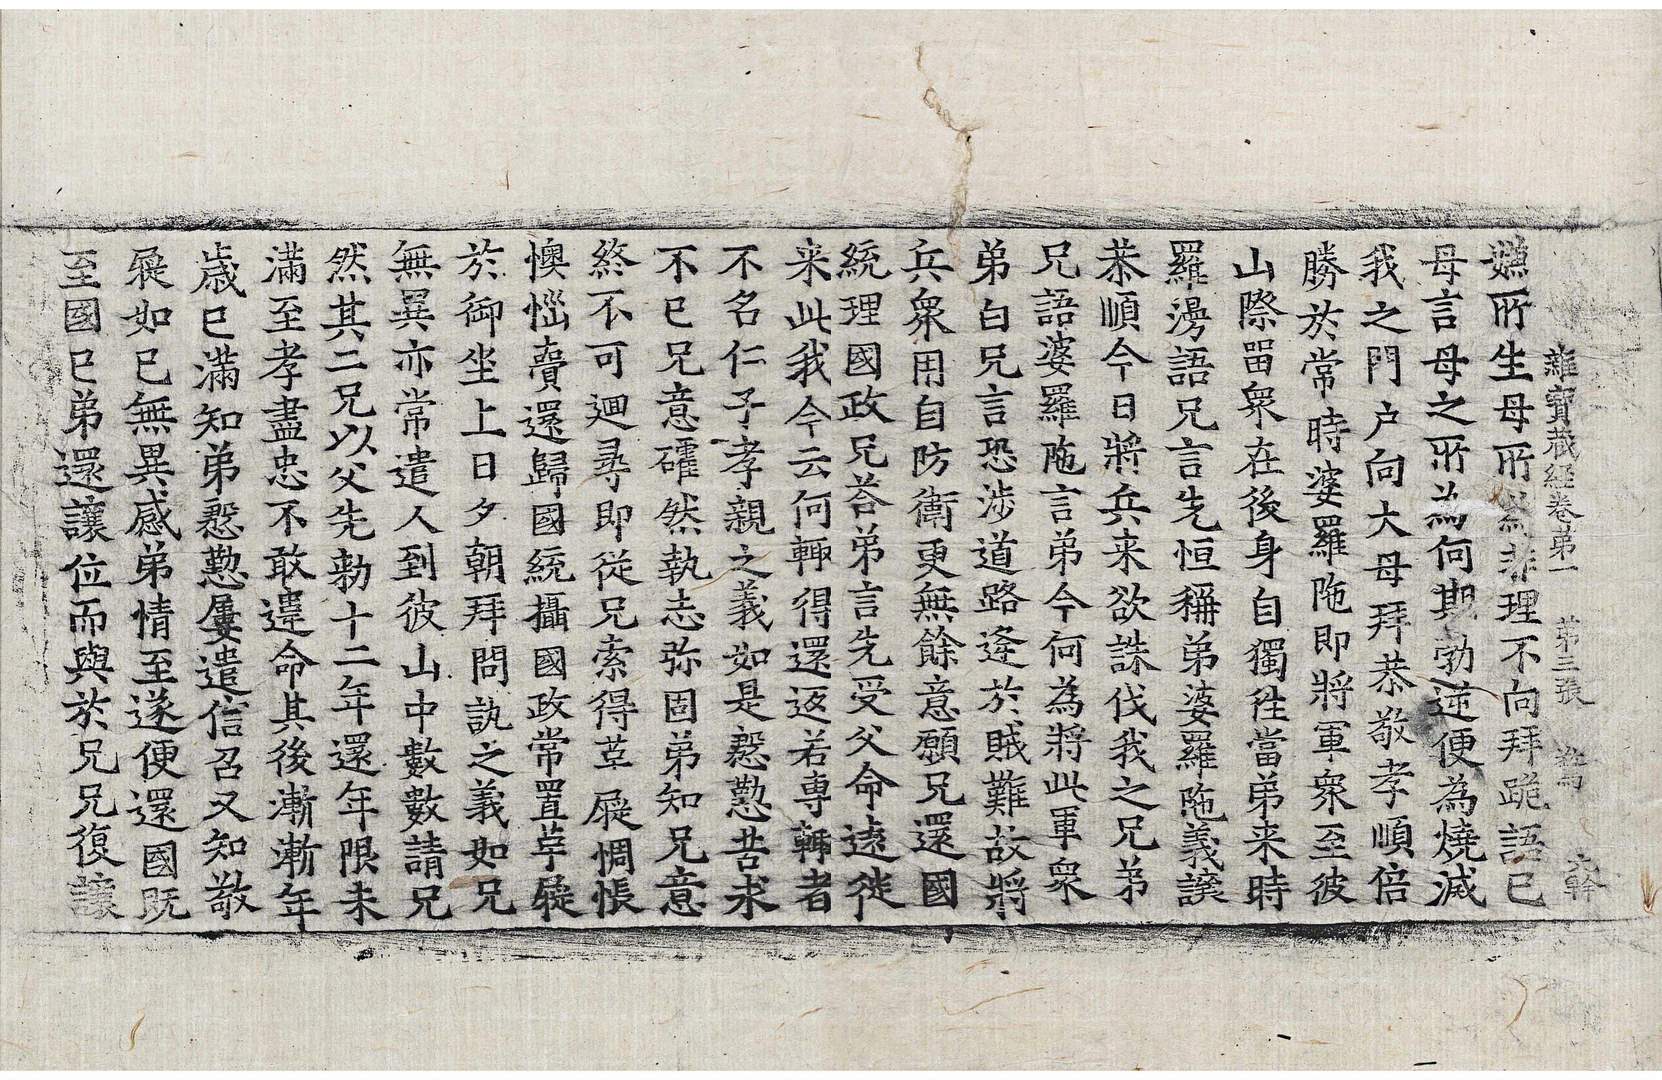 雜寶蔵経卷弟一 弟三張 大幹
嫌所生母所為非理不向拜跪語已
母言母之所為何期勃逆便為燒滅
我之門户向大母拜恭敬孝順倍
勝於常時婆羅陁即將軍衆至彼
山際畱衆在後身自獨徃當弟来時
羅漫語兄言先恒稱弟婆羅陁義讓
恭順今日將兵来欲誅伐我之兄弟
兄語婆羅陁言弟今何為將此軍衆
弟白兄言恐涉道路逢於賊難故將
兵衆用自防衛更無餘意願兄還國
統理國政兄荅弟言先受父命遠徙
来此我今云何輒得還返若專輒者
不名仁子孝親之義如是慇懃苦求
不已兄意確然執志弥固弟知兄意
終不可迴尋即従兄索得革屣惆悵
懊惱賷還歸國統攝國政常置革屣
於御坐上日夕朝拜問訊之義如兄
無異亦常遣人到彼山中數數請兄
然其二兄以父先勅十二年還年限未
滿至孝盡忠不敢違命其後漸漸年
歳已滿知弟慇懃屢遣信召又知敬
屣如已無異感弟情至遂便還國既
至國已弟還讓位而與於兄兄復讓